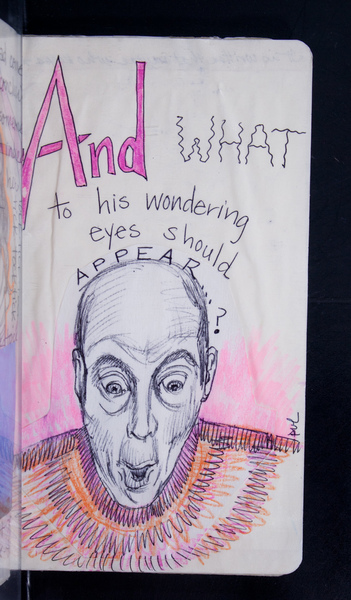 And WHAT
to his wondering
eyes should
APPEAR...?